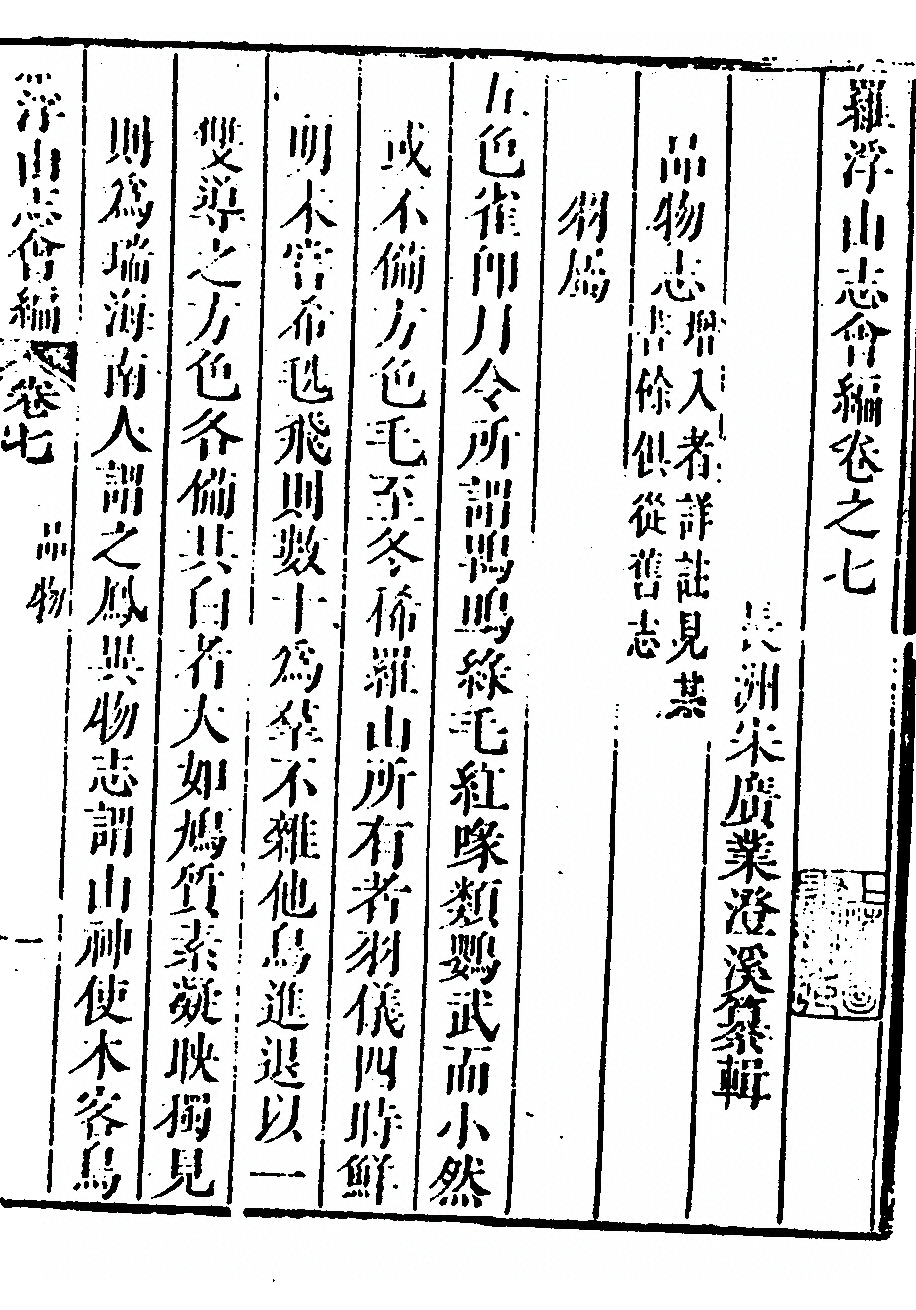 羅浮山志會編卷之七
長洲宋廣業澄溪纂輯
品物志增入者詳註見某
書餘俱從舊志
羽屬
五色雀卽月令所謂鳴綠毛紅喙類鸚武而小然
或不備方色毛至冬稀羅山所有者羽儀四時鮮
明未嘗希毨飛則數十為羣不雜他鳥進退以一
雙導之方色各備其白者大如鳩質素凝映獨見
則為瑞海南人謂之鳳異物志謂山神使木客鳥
羅浮山志會編
卷七
品物
一